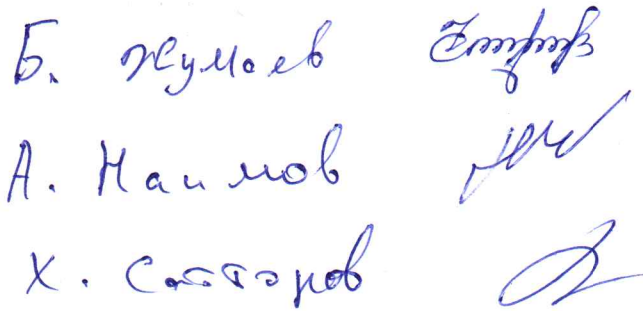 Б. Жумаев
А. Наимов
Х. Саттаров